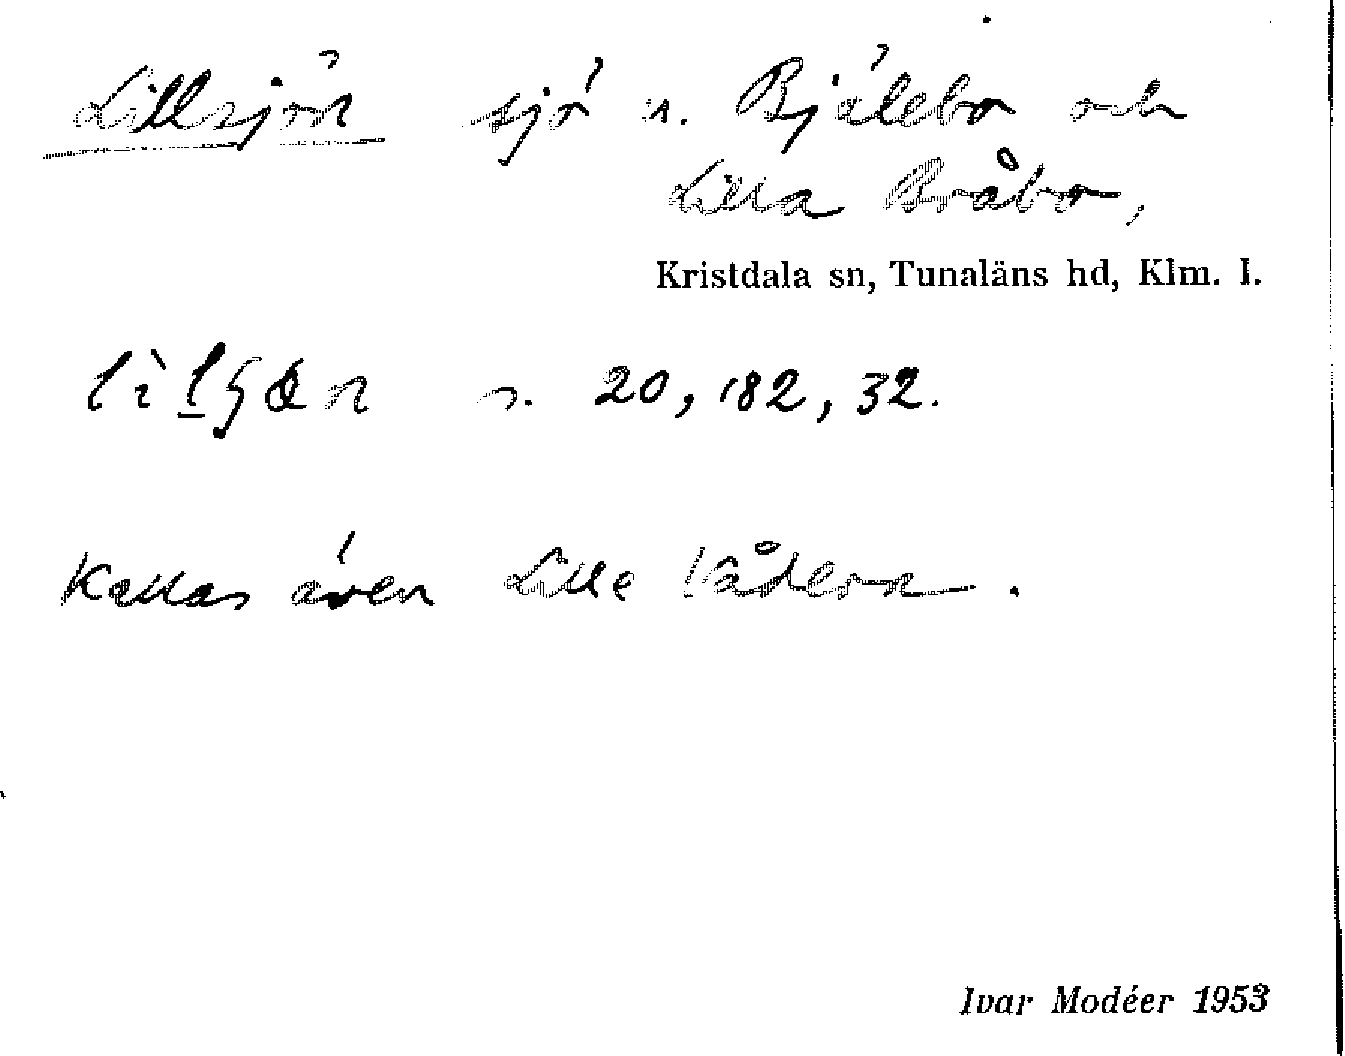 Lillsjön sjö n. Bjälebo och
Lilla Bråbo,
Kristdala sn, Tunaläns hd, Klm. l.
20, 182, 32.
Kallas även Lille
Ivar Modéer 1953